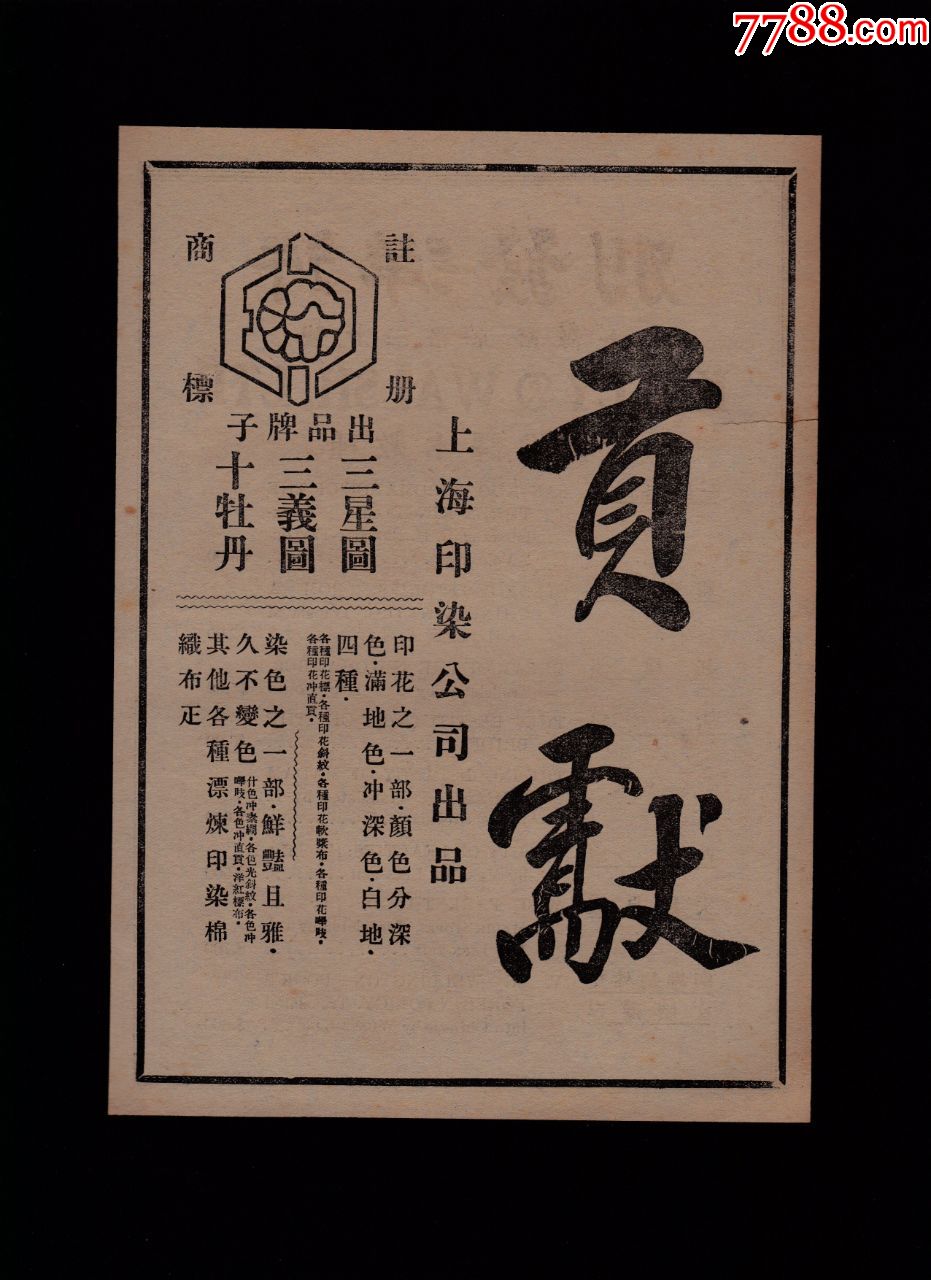 7788.com
貢獻
上海印染公司出品
註册
商標
出品牌子
三星圖
三義圖
十牡丹
印花之一部·顏色分深
色·滿地色·冲深色·白地·
四種·
各種印花標·各種印花斜紋·各種印花軟漿布·各種印花嗶吱·
各種印花冲直貢·
染色之一部·鮮豔且雅·
久不變色
什色冲素綢·各色光斜紋·各色冲
嗶吱·各色冲直貢·洋紅標布·
其他各種漂煉印染棉
織布疋